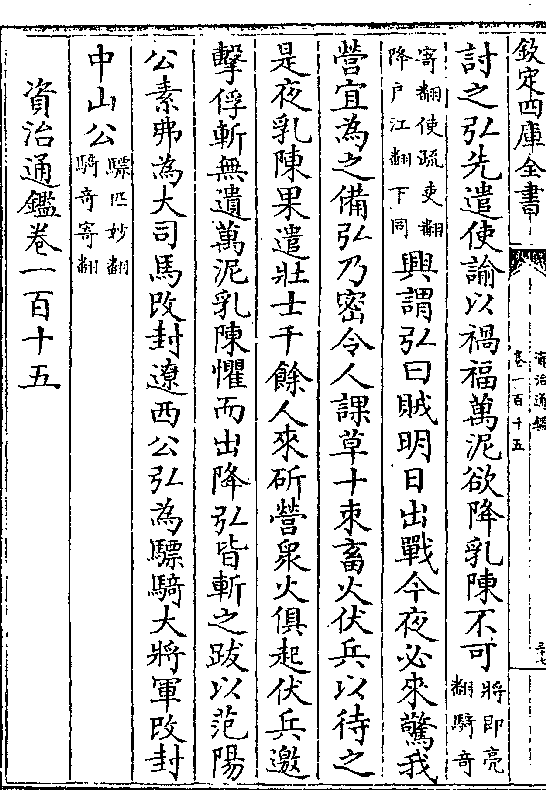 欽定四庫全書
資治通鑑
卷一百十五
討之弘先遣使諭以禍福萬泥欲降乳陳不可將即亮翻騎奇
寄翻使疏吏翻降户江翻下同興謂弘曰賊明日出戰今夜必來驚我
營宜為之備弘乃密令人課草十束畜火伏兵以待之
是夜乳陳果遣壯士千餘人來斫營衆火俱起伏兵邀
擊俘斬無遺萬泥乳陳懼而出降弘皆斬之跋以范陽
公素弗為大司馬改封遼西公弘為驃騎大將軍改封
中山公驃匹妙翻騎奇寄翻
資治通鑑卷一百十五